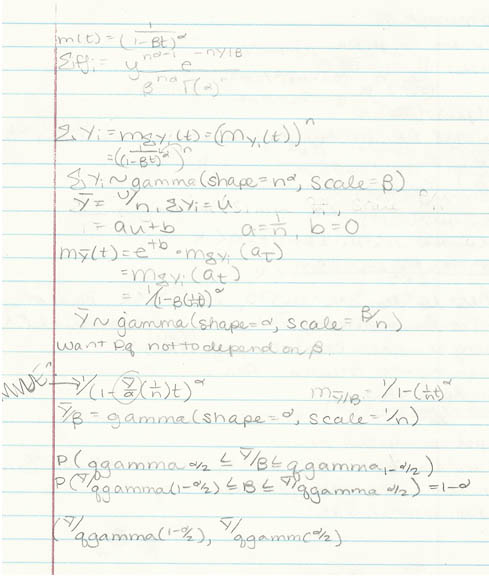 m(t) = 1/(1-βt)^α
Σyi = y^(nα-1) e^(-ny/β) / β^(nα) Γ(α)^n
Σyi = mΣyi(t) = (myi(t))^n
= (1/(1-βt)^α)^n
Σyi ~ gamma(shape = nα, scale = β)
ȳ = U/n, Σyi = U
= aU + b a = 1/n, b = 0
mȳ(t) = e^(tb) · mΣyi(at)
= mΣyi(at)
= 1/(1-β(1/n)t)^α
ȳ ~ gamma(shape = α, scale = β/n)
want p.q not to depend on β
→ 1/(1-(ȳ/α)(1/n)t)^α mȳ/β = 1/1-(1/n t)^α
ȳ/β = gamma(shape = α, scale = 1/n)
P(qgamma α/2 ≤ ȳ/β ≤ qgamma 1-α/2)
P(ȳ/qgamma(1-α/2) ≤ β ≤ ȳ/qgamma α/2) = 1-α
(ȳ/qgamma(1-α/2), ȳ/qgamm(α/2)